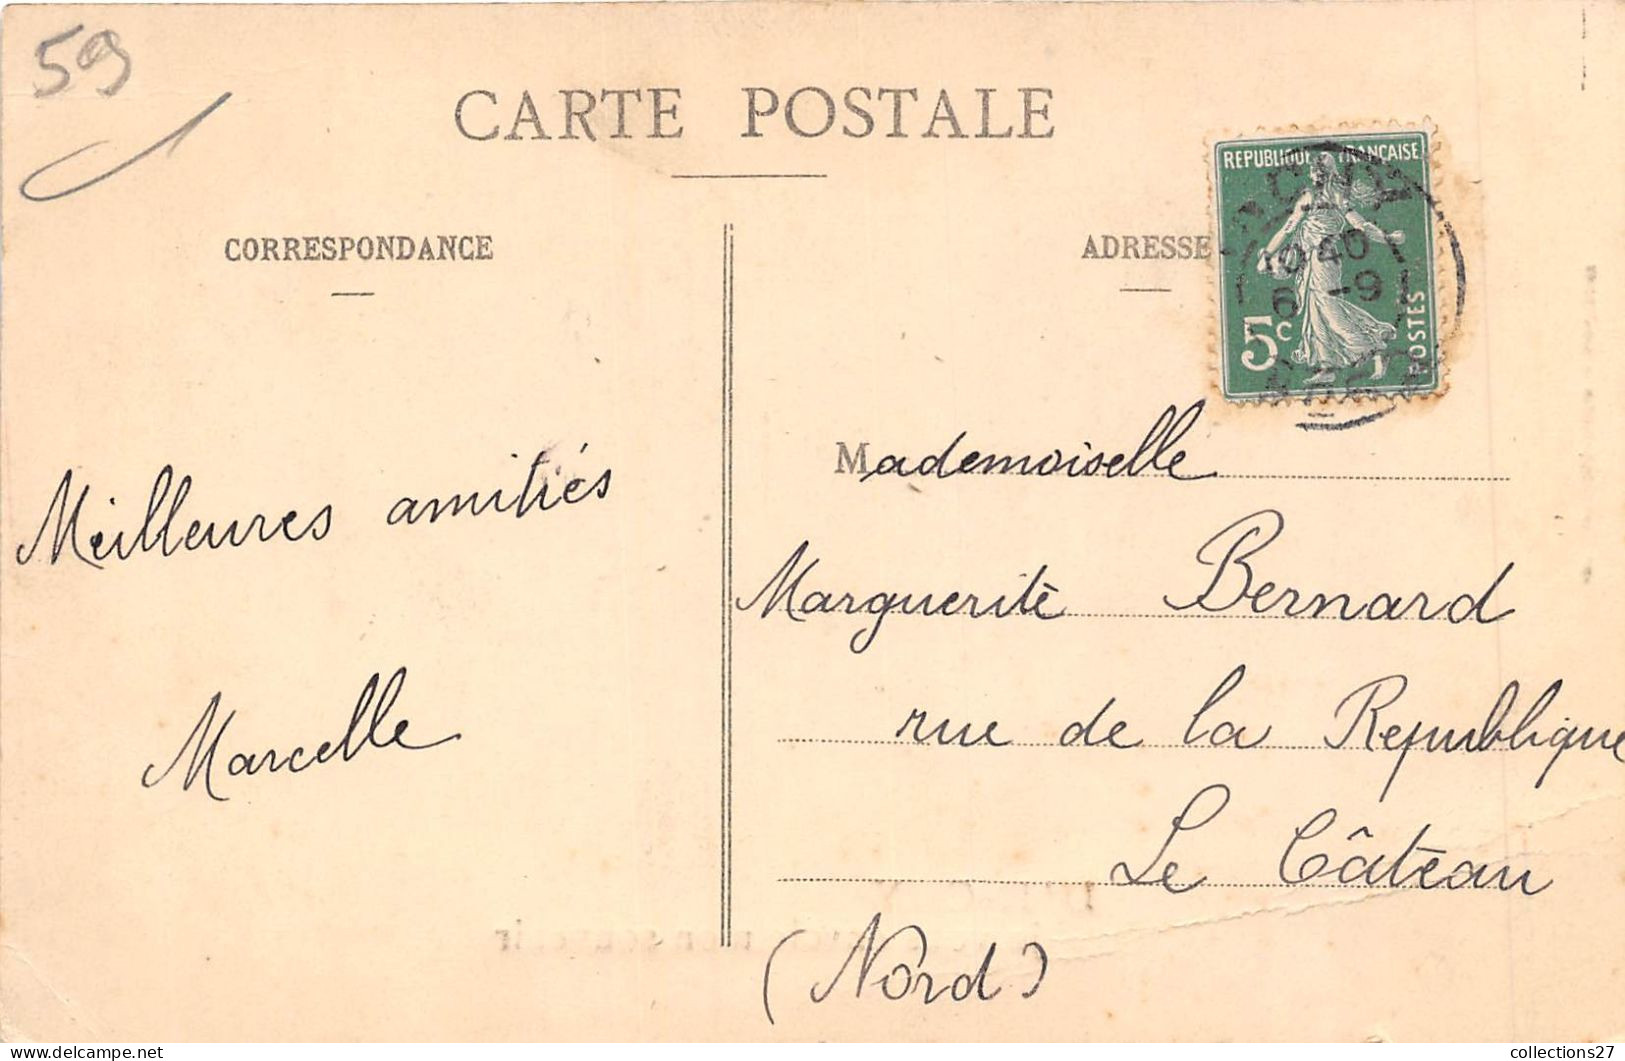 59
CARTE POSTALE
CORRESPONDANCE
ADRESSE
REPUBLIQUE FRANÇAISE
10 40
6 -9
5c
POSTES
Meilleures amitiés
Marcelle
Mademoiselle
Marguerite Bernard
rue de la Republique
Le Câteau
(Nord)
collections27